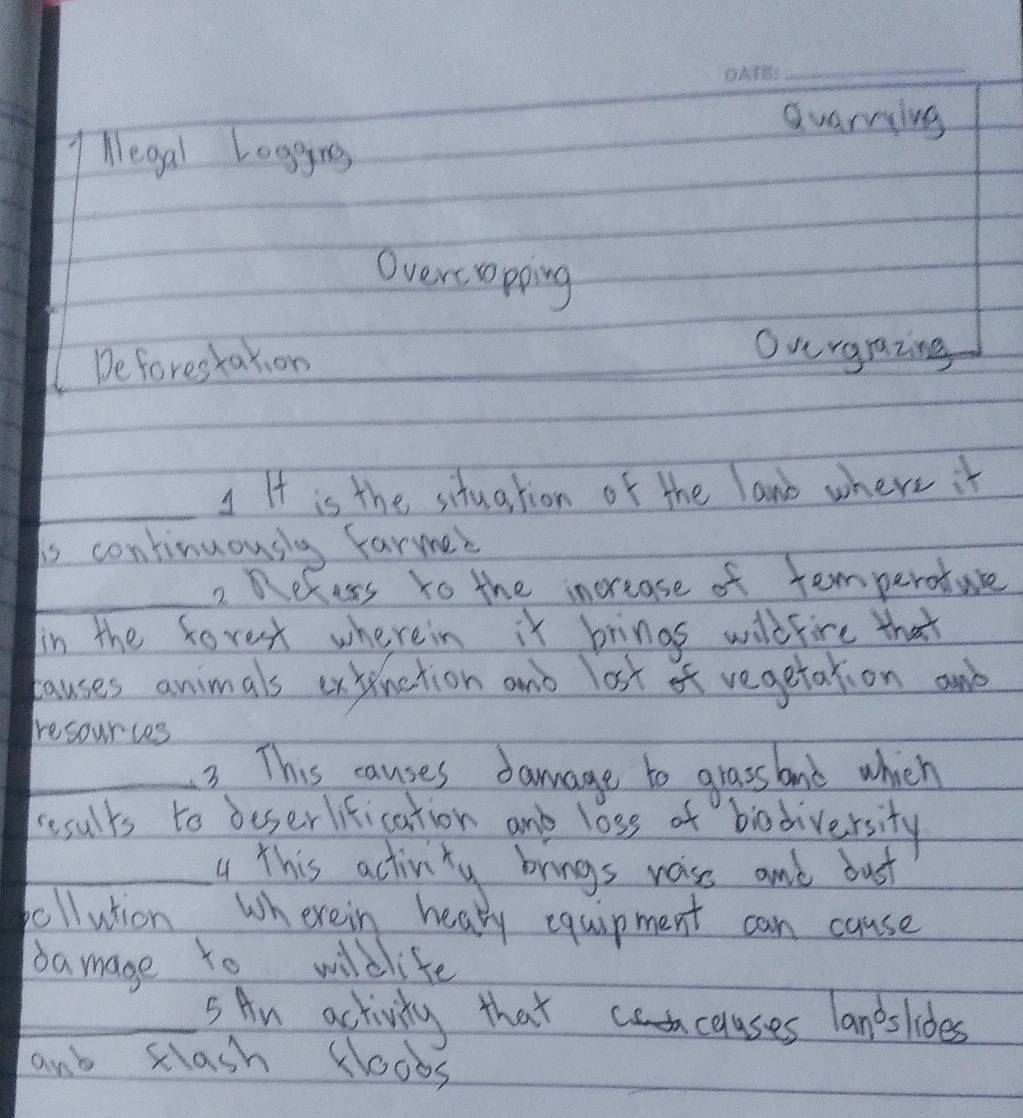 DATE:
Quarrying
Illegal Logging
Overcropping
Overgrazing
Deforestation
1 It is the situation of the land where it
is continuously farmed
2 Refers to the increase of temperature
in the forest wherein it brings wildfire that
causes animals extinction and lost of vegetation and
resources
3 This causes damage to grassland which
results to desertification and loss of biodiversity
4 This activity brings noise and dust
pollution wherein heavy equipment can cause
damage to wildlife
5 An activity that causes landslides
and flash floods